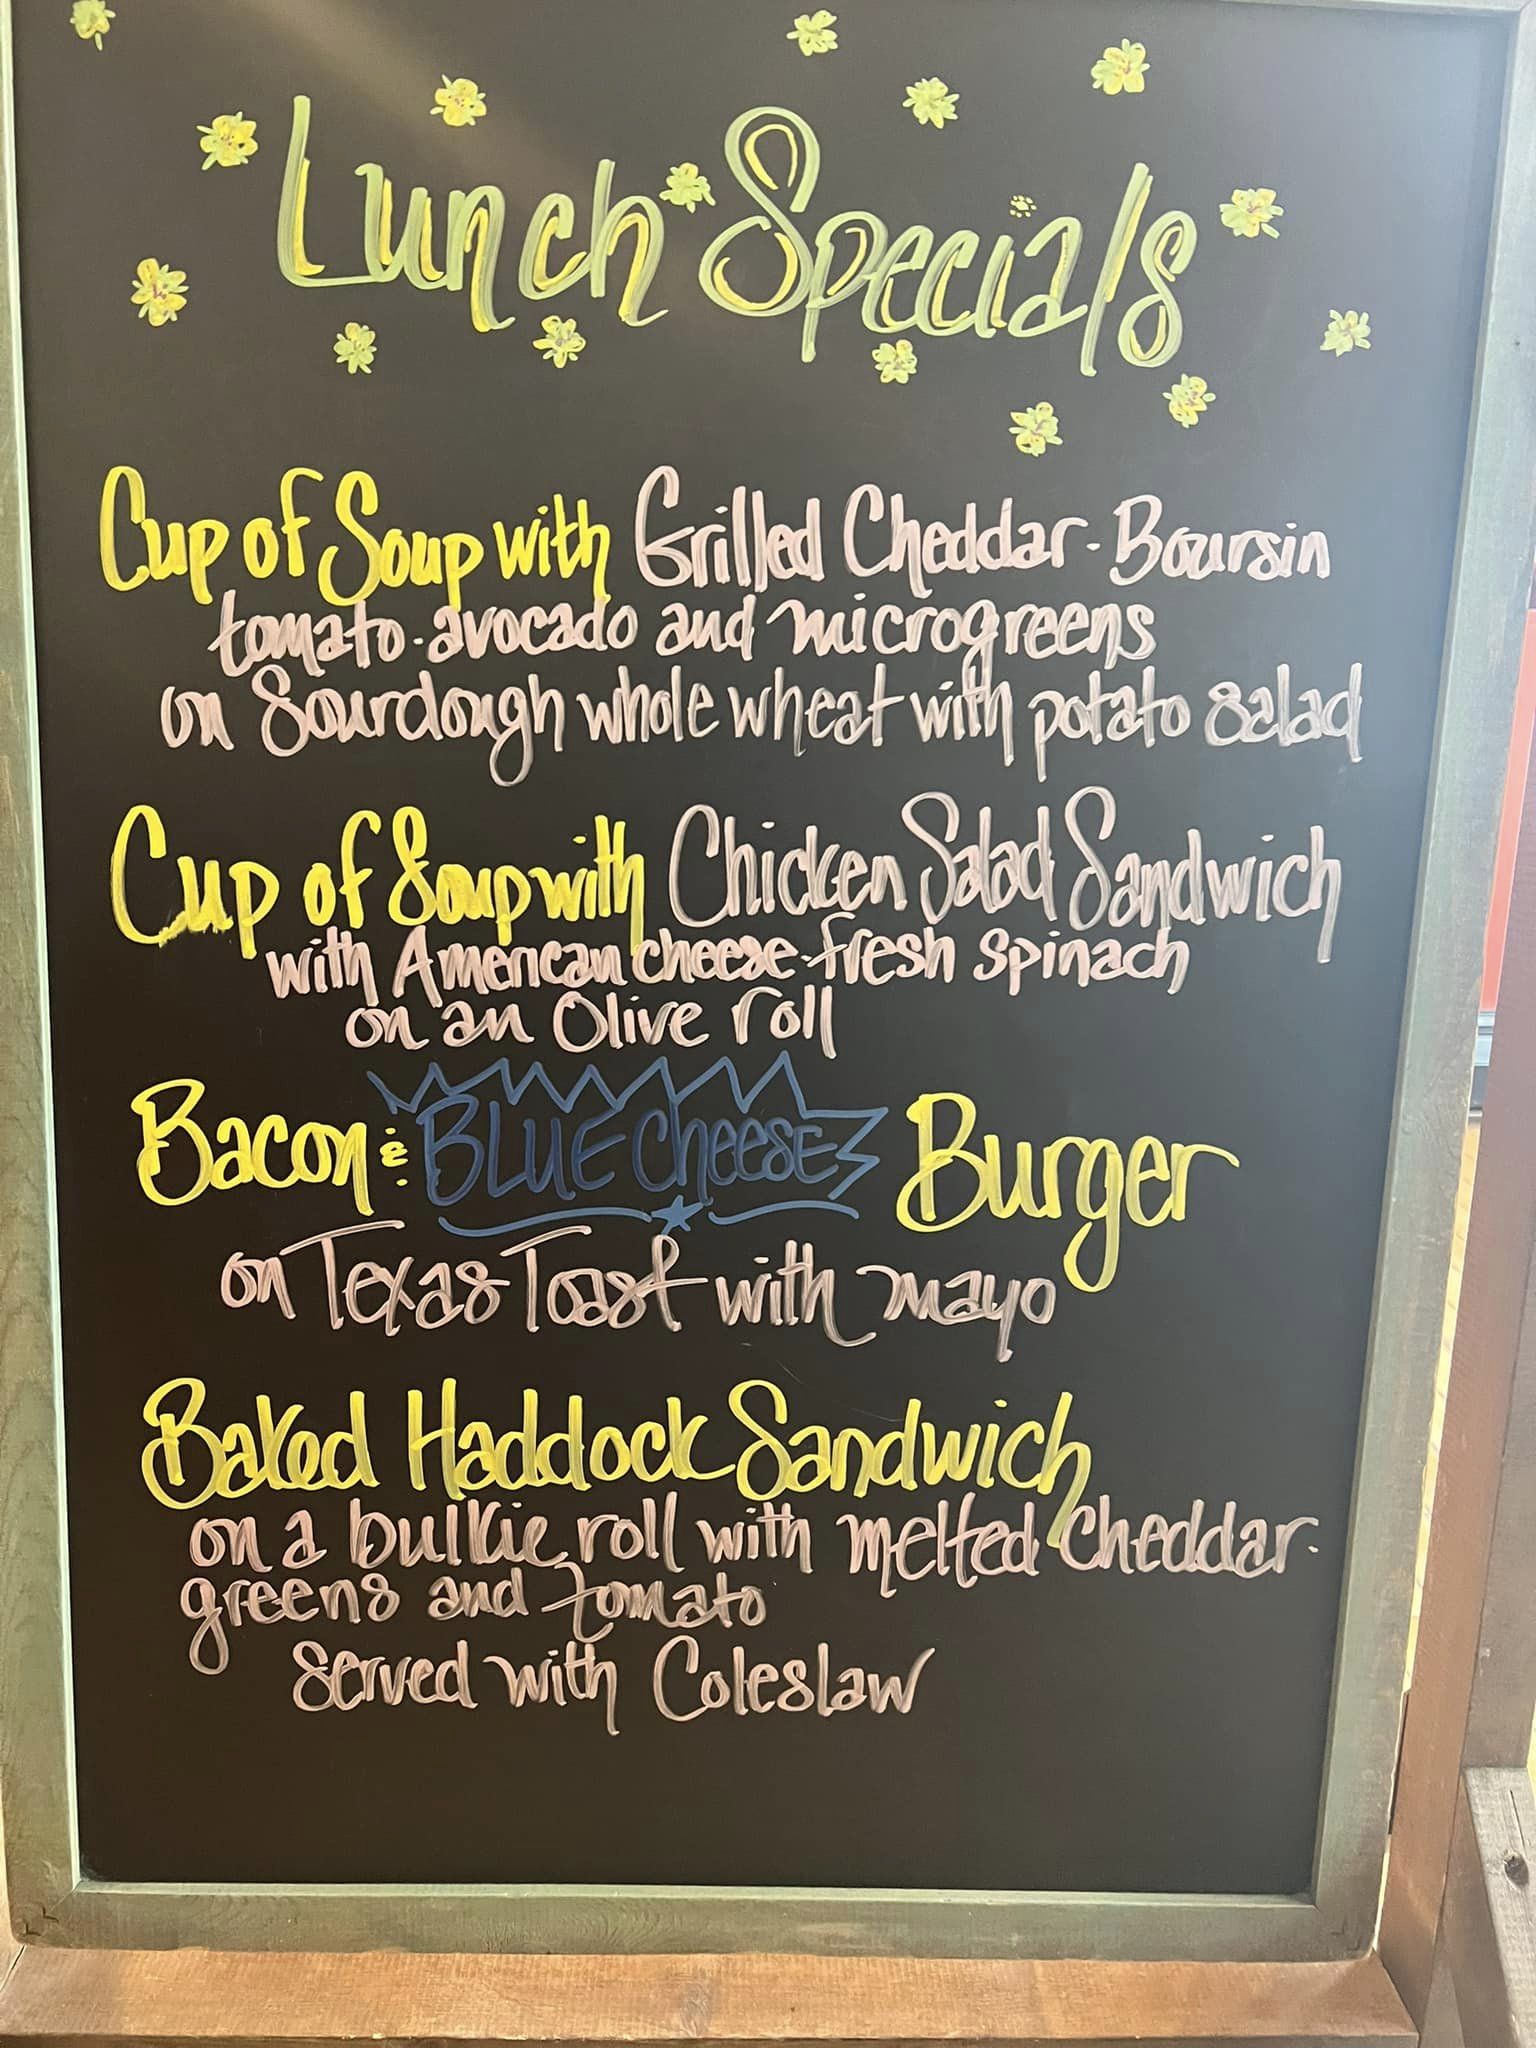 Lunch Specials
Cup of Soup with Grilled Cheddar - Boursin
tomato - avocado and microgreens
on Sourdough whole wheat with potato salad
Cup of Soup with Chicken Salad Sandwich
with American cheese - fresh spinach
on an Olive roll
Bacon & BLUE Cheese Burger
on Texas Toast with mayo
Baked Haddock Sandwich
on a bulkie roll with melted Cheddar -
greens and tomato
Served with Coleslaw